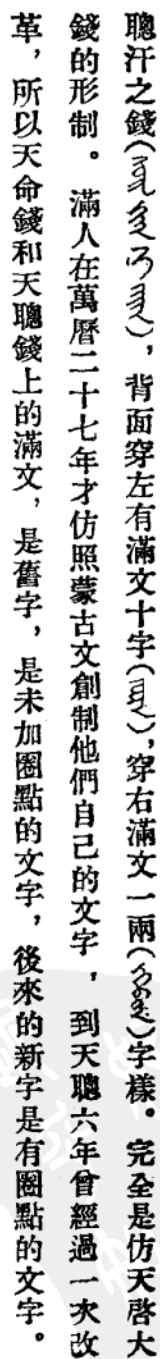 聰汗之錢(ᠰᡠᡵᡝ ᡥᠠᠨ ᠨᡳ ᠵᡳᡴᠠ),背面穿左有滿文十字(),穿右滿文一兩()字樣。完全是仿天啓大
錢的形制。滿人在萬曆二十七年才仿照蒙古文創制他們自己的文字,到天聰六年曾經過一次改
革,所以天命錢和天聰錢上的滿文,是舊字,是未加圈點的文字,後來的新字是有圈點的文字。